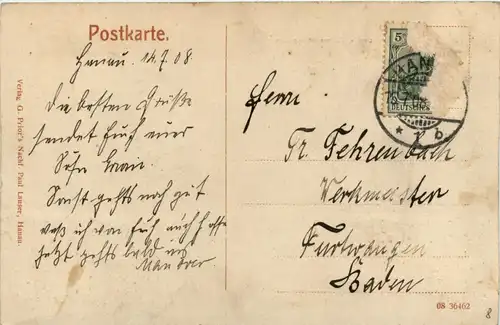 Postkarte.
Hanau. 14.7.08
Die besten Grüße
sendet Euch euer
Sohn
Sonst gehts noch gut
was ich von Euch auch hoffe
jetzt gehts bald
Verlag G. Prior's Nachf. Paul Länzer, Hanau.
5
DEUTSCHES
Herrn
Fr. Fehrenbach
Werkmeister
Furtwangen
Baden
08 36462
8